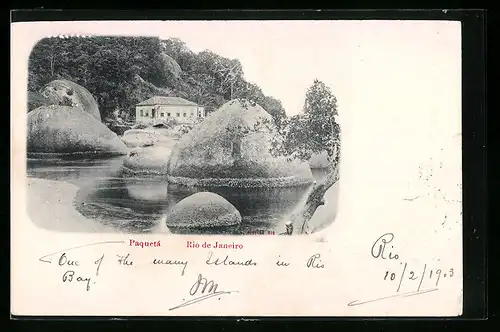 Paquetá Rio de Janeiro
One of the many Islands in Rio
Bay.
Rio
10/2/1903